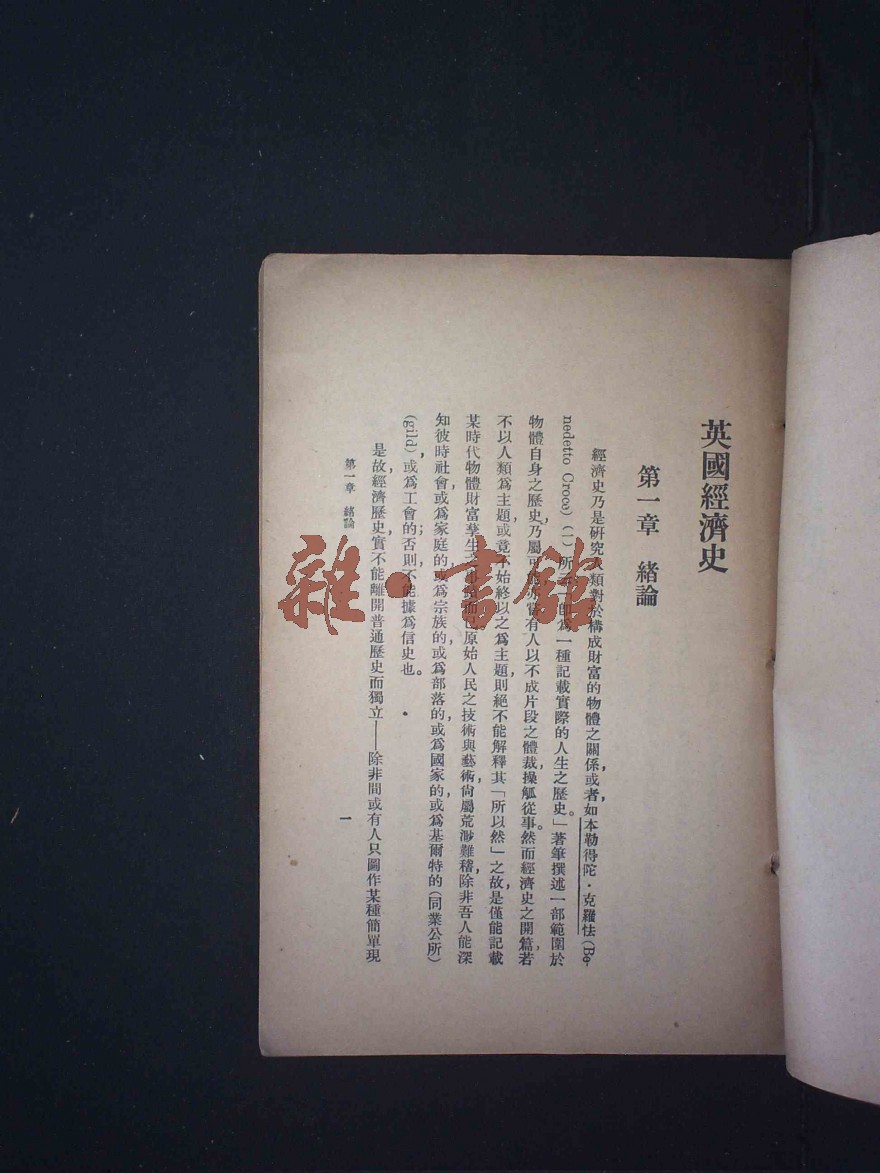 英國經濟史
第一章　緒論
經濟史乃是研究人類對於構成財富的物體之關係，或者，如本勒得陀·克羅怯(Be-
nedetto Croce)(一)所 卽爲一種記載實際的人生之歷史」著筆撰述一部範圍於
物體自身之歷史，乃屬可 有人以不成片段之體裁操觚從事。然而經濟史之開篇，若
不以人類爲主題，或竟不始終以之爲主題，則絕不能解釋其「所以然」之故，是僅能記載
某時代物體財富孳生 而已。原始人民之技術與藝術，尙屬荒渺難稽，除非吾人能深
知彼時社會或爲家庭的，或爲宗族的，或爲部落的，或爲國家的，或爲基爾特的(同業公所)
(gild)，或爲工會的；否則，不能據爲信史也。
是故，經濟歷史，實不能離開普通歷史而獨立——除非間或有人只圖作某種簡單現
第一章　緒論
一
雜·書館